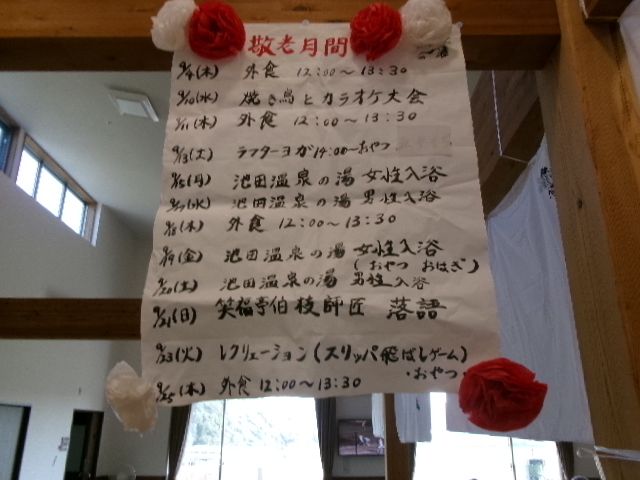 敬老月間
9/4(木) 外食 12:00〜13:30
9/10(水) 焼き鳥とカラオケ大会
9/11(木) 外食 12:00〜13:30
9/13(土) ラフターヨガ14:00〜おやつ
9/15(月) 池田温泉の湯 女性入浴
9/17(水) 池田温泉の湯 男性入浴
9/18(木) 外食 12:00〜13:30
9/19(金) 池田温泉の湯 女性入浴
(おやつ おはぎ)
9/20(土) 池田温泉の湯 男性入浴
9/21(日) 笑福亭伯枝師匠 落語
9/23(火) レクリェーション(スリッパ飛ばしゲーム)
・おやつ・
9/25(木) 外食 12:00〜13:30